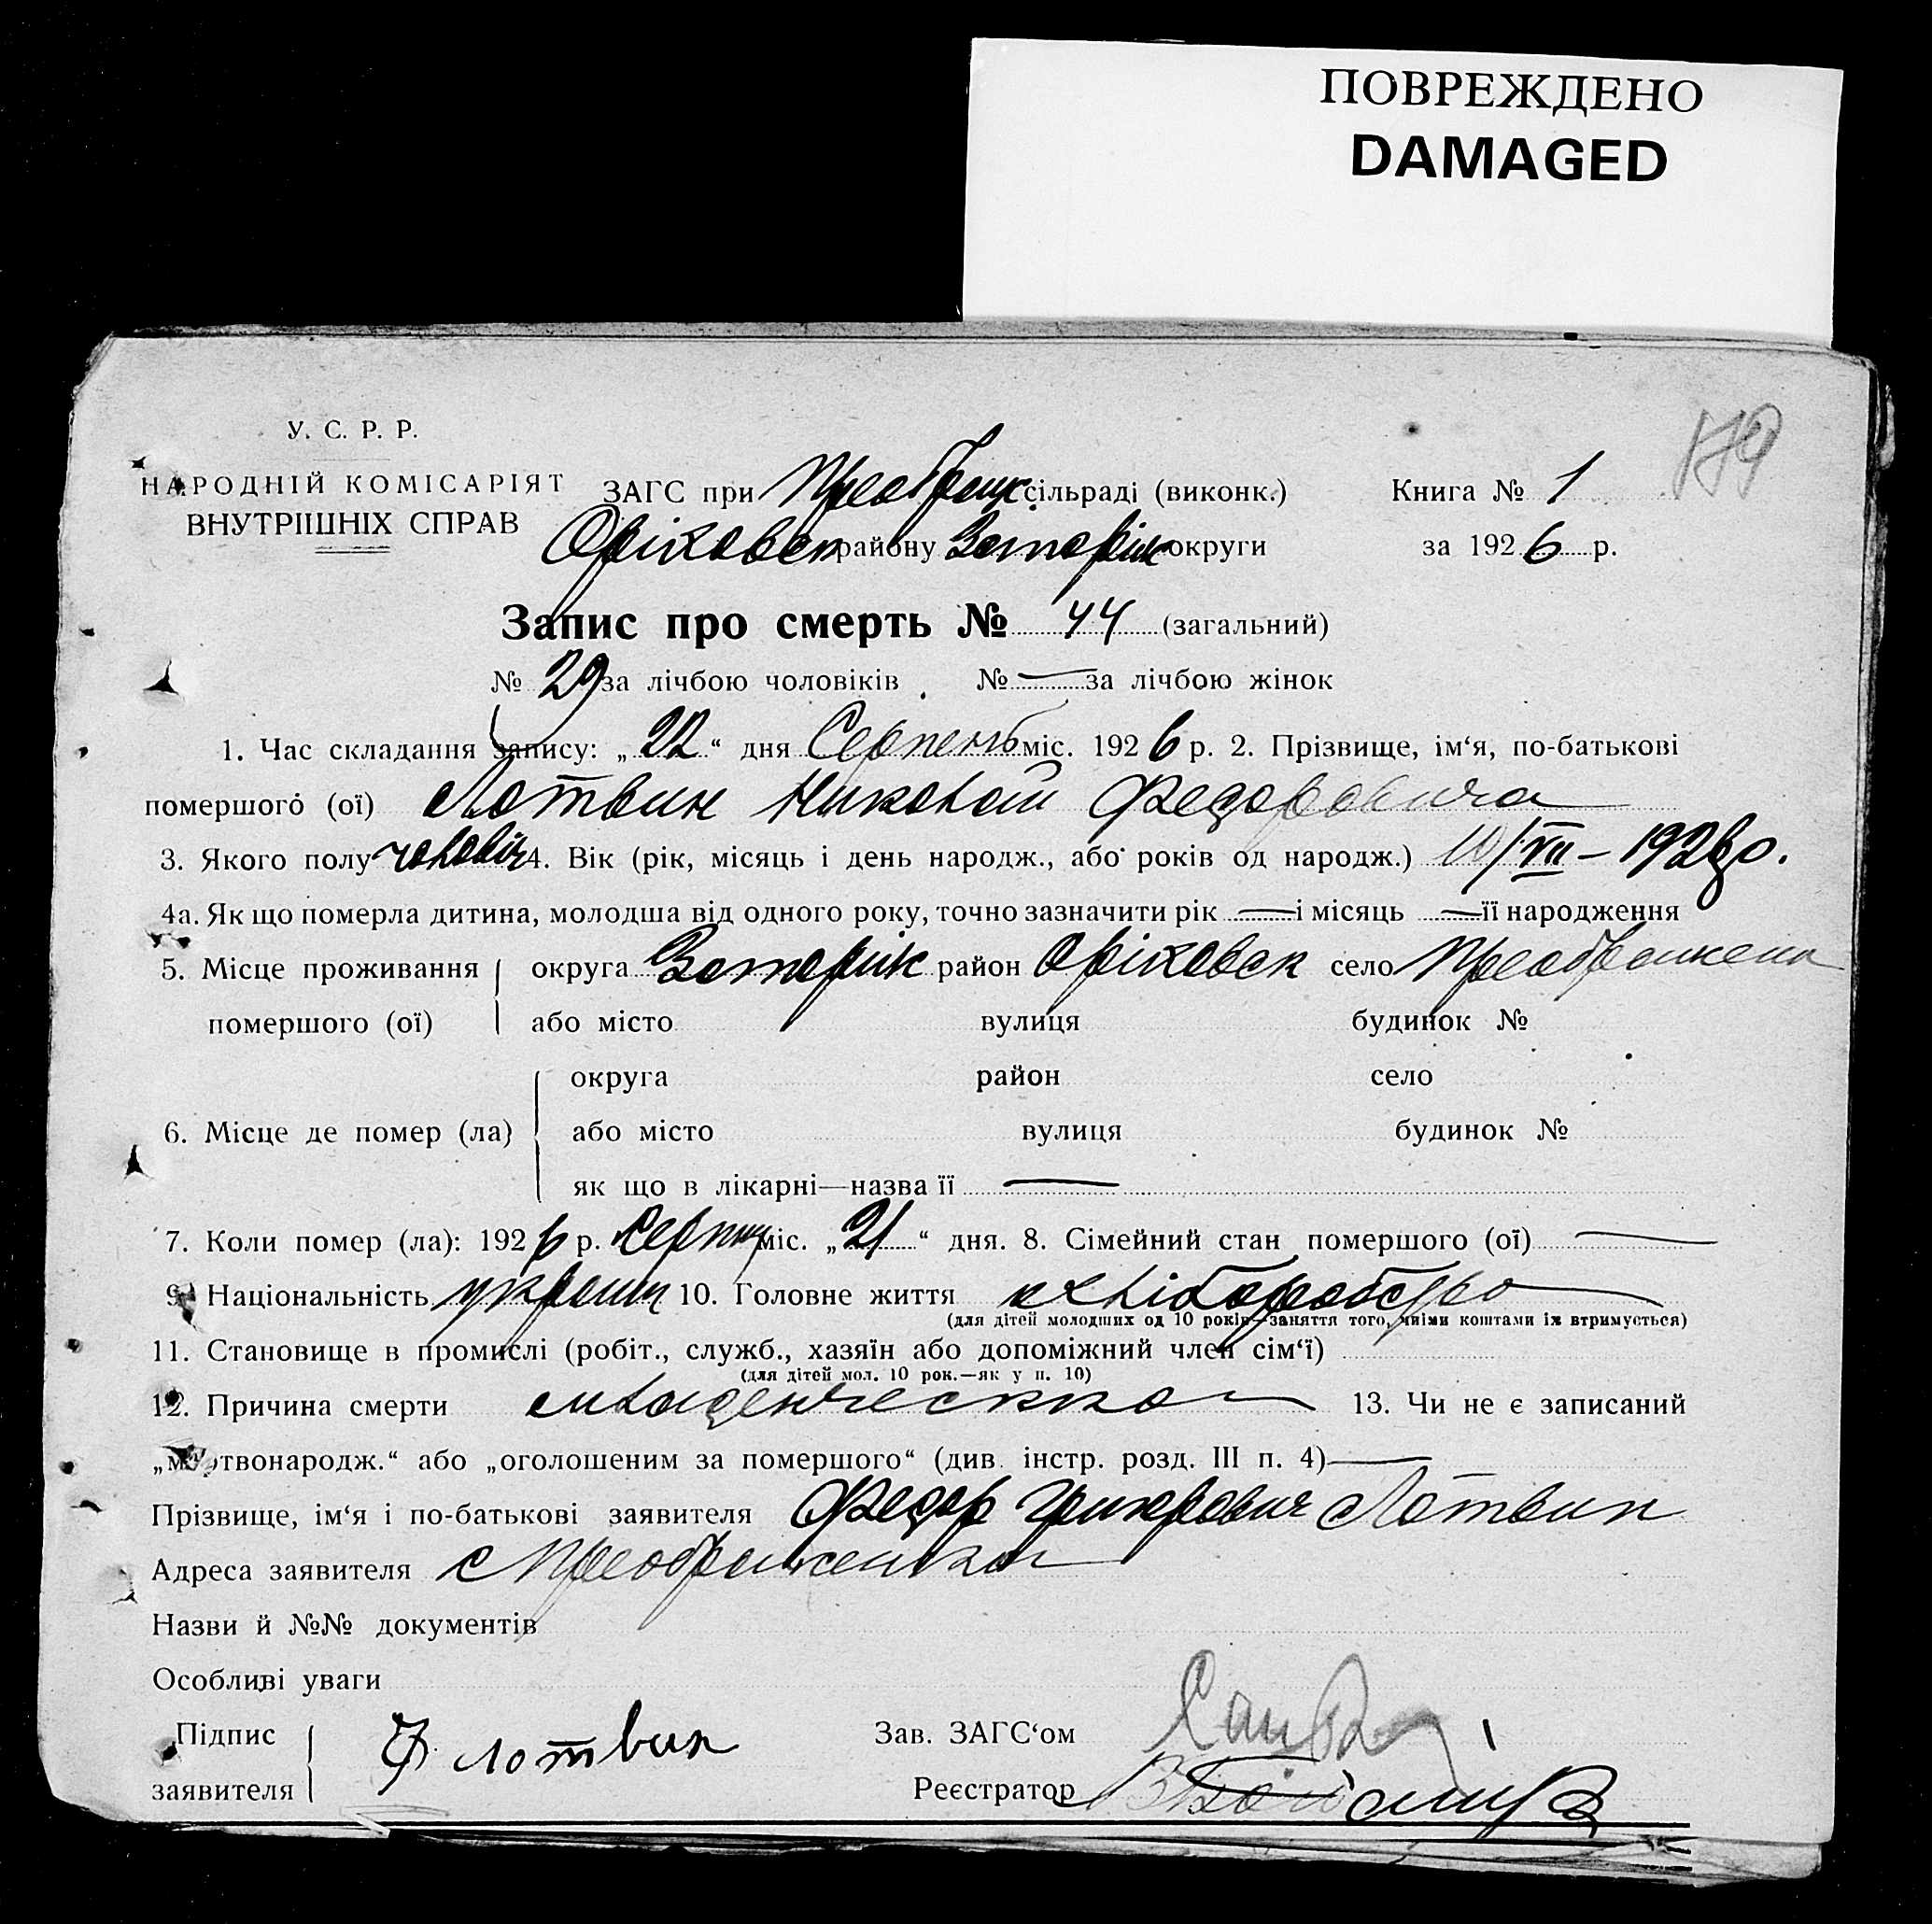 ПОВРЕЖДЕНО
DAMAGED
У. С. Р. Р.
НАРОДНІЙ КОМІСАРІЯТ
ВНУТРІШНІХ СПРАВ
ЗАГС при Преображ сільраді (виконк.) Книга № 1
179
Оріховск району Запоріж округи за 1926 р.
Запис про смерть № 44 (загальний)
№ 29 за лічбою чоловіків № — за лічбою жінок
1. Час складання запису: „22“ дня Серпень міс. 1926 р. 2. Прізвище, ім‘я, по-батькові
помершого (ої) Лотвин Николай Федоровича
3. Якого полу чоловіч 4. Вік (рік, місяць і день народж., або років од народж.) 10/VII – 1926 р.
4а. Як що померла дитина, молодша від одного року, точно зазначити рік — і місяць — її народження
5. Місце проживання округа Запоріж район Оріховск село Преображенк
помершого (ої) або місто вулиця будинок №
округа район село
6. Місце де помер (ла) або місто вулиця будинок №
як що в лікарні—назва її —
7. Коли помер (ла): 1926 р. Серпня міс. „21“ дня. 8. Сімейний стан помершого (ої) —
9. Національність україн 10. Головне життя хліборобство
(для дітей молодших од 10 років—заняття того, чиїми коштами їх втримується)
11. Становище в промислі (робіт., служб., хазяїн або допоміжний член сім‘ї)
(для дітей мол. 10 рок.—як у п. 10)
12. Причина смерти младенческая 13. Чи не є записаний
„мертвонародж.“ або „оголошеним за помершого“ (див. інстр. розд. III п. 4) —
Прізвище, ім‘я і по-батькові заявителя Федор Григорович Лотвин
Адреса заявителя с Преображенка
Назви й №№ документів
Особливі уваги
Підпис
заявителя
Ф Лотвин
Зав. ЗАГС‘ом
Реєстратор